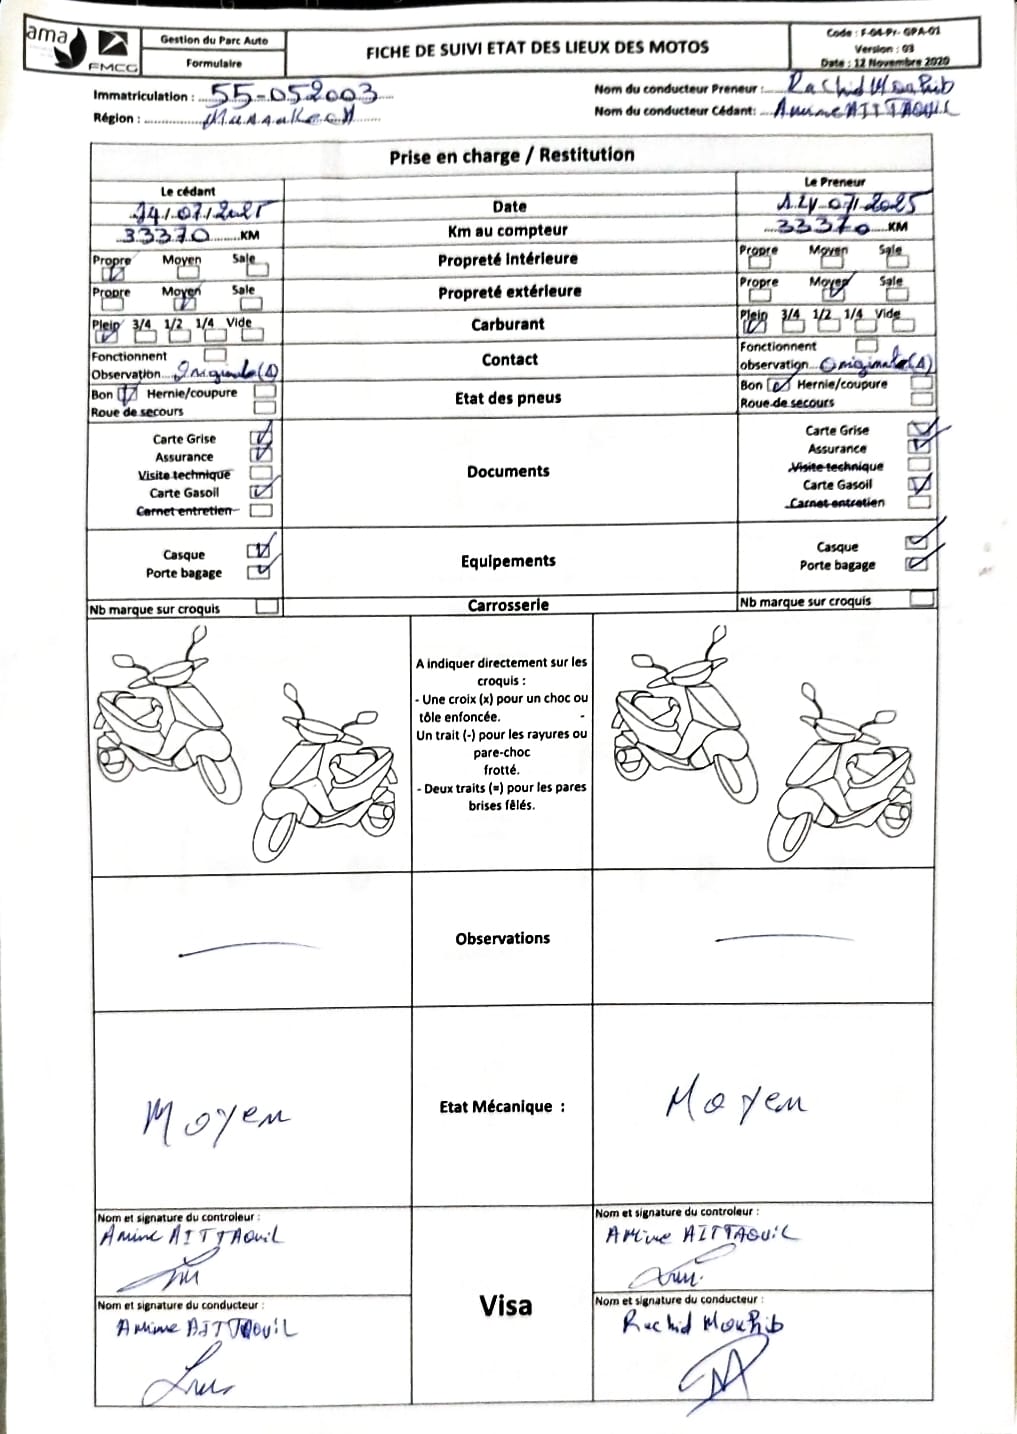 ama
FMCG
Gestion du Parc Auto
Formulaire
FICHE DE SUIVI ETAT DES LIEUX DES MOTOS
Code : F-04-Pr- GPA-01
Version : 03
Date : 12 Novembre 2020
Immatriculation : 55-052003
Région :
Nom du conducteur Preneur : Rachid Mouhib
Nom du conducteur Cédant: Amine AITTAOUIL
Prise en charge / Restitution
Le cédant
Le Preneur
14/07/2025 Date 14/07/2025
33370 KM Km au compteur 33370 KM
Propre Moyen Sale Propreté Intérieure Propre Moyen Sale
Propre Moyen Sale Propreté extérieure Propre Moyen Sale
Plein 3/4 1/2 1/4 Vide Carburant Plein 3/4 1/2 1/4 Vide
Fonctionnent Contact Fonctionnent
Observation... Originale(1) observation... Originale(1)
Bon Hernie/coupure Etat des pneus Bon Hernie/coupure
Roue de secours Roue de secours
Carte Grise Carte Grise
Assurance Assurance
Visite technique Documents Visite technique
Carte Gasoil Carte Gasoil
Carnet entretien Carnet entretien
Casque Equipements Casque
Porte bagage Porte bagage
Nb marque sur croquis Carrosserie Nb marque sur croquis
A indiquer directement sur les
croquis :
- Une croix (x) pour un choc ou
tôle enfoncée. -
Un trait (-) pour les rayures ou
pare-choc
frotté.
- Deux traits (=) pour les pares
brises fêlés.
Observations
Moyen Etat Mécanique : Moyen
Nom et signature du controleur : Nom et signature du controleur :
Amine AITTAOUIL AMine AITTAOUIL
Visa
Nom et signature du conducteur : Nom et signature du conducteur :
AMine AITTAOUIL Rachid Mouhib